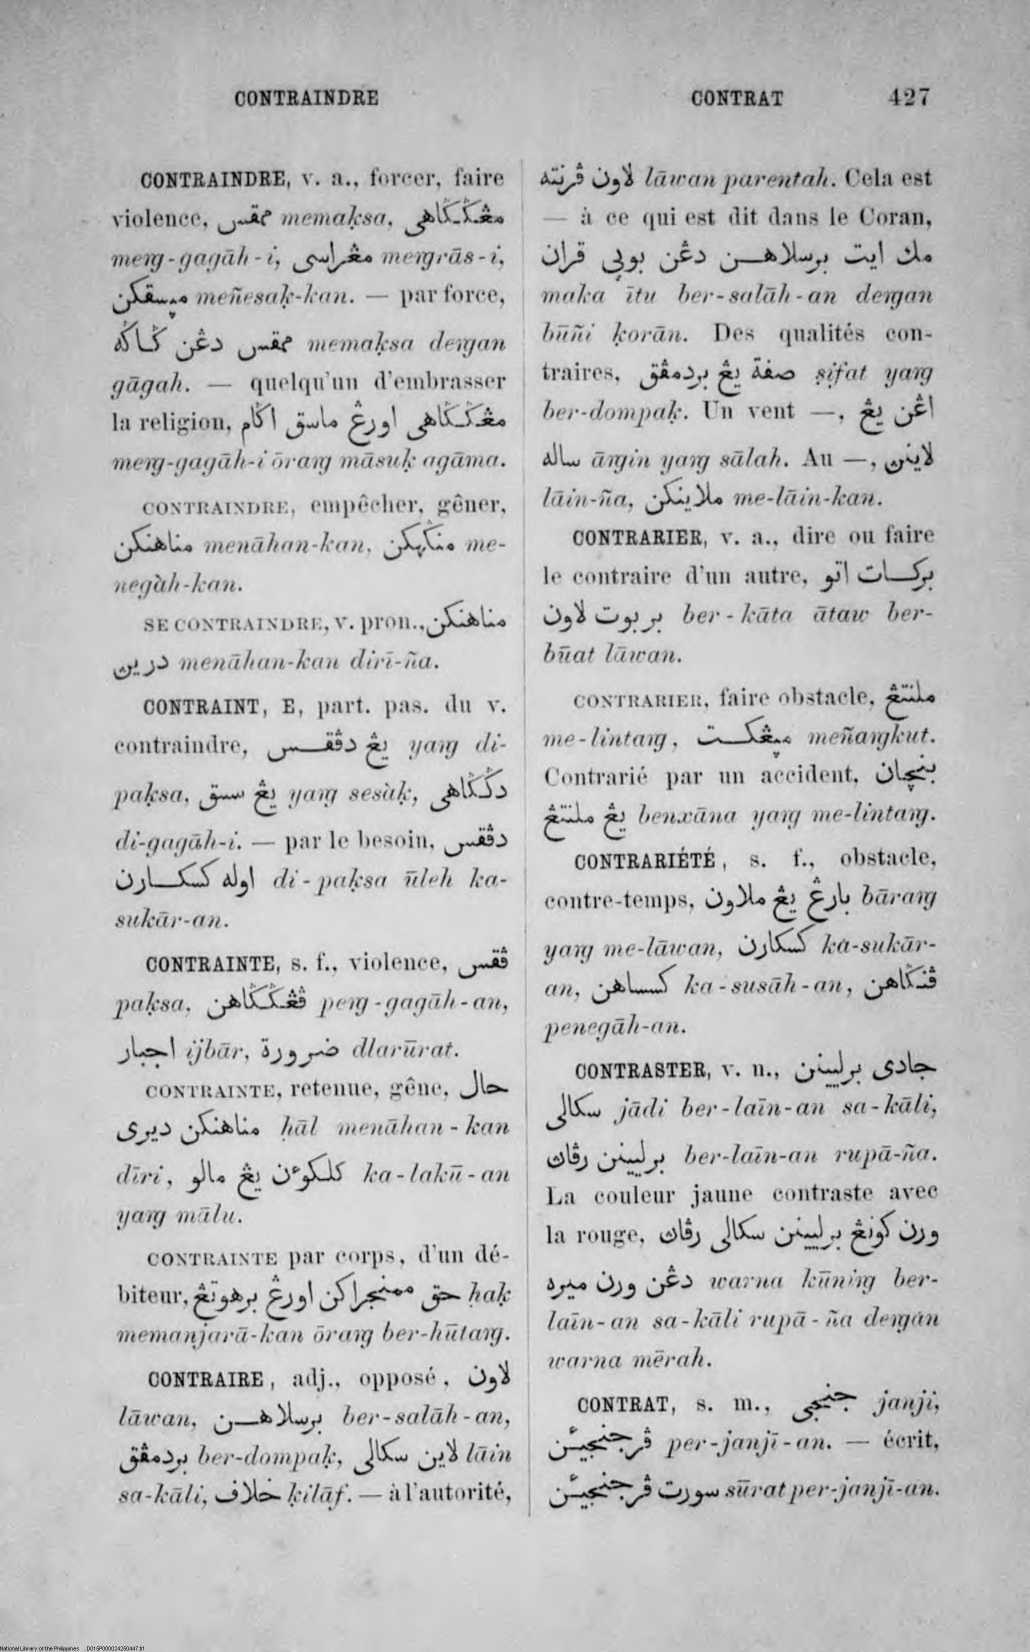 CONTRAINDRE
CONTRAT 427
CONTRAINDRE, v. a., forcer, faire
violence, ممقس memaḳsa, مڠݢݢاهى
meṅg-gagāh-i, مڠراسى meṅgrās-i,
ميسقكن meñesaḳ-kan. — par force,
ممقس دڠن ݢاݢه memaḳsa deṅgan
gāgah. — quelqu'un d'embrasser
la religion, مڠݢݢاهى اورڠ ماسق اݢام
meṅg-gagāh-i ōraṅg māsuḳ agāma.
CONTRAINDRE, empêcher, gêner,
مناهنكن menāhan-kan, منݢهكن me-
negàh-kan.
SE CONTRAINDRE, v. pron., مناهنكن
درين menāhan-kan dirī-ña.
CONTRAINT, E, part. pas. du v.
contraindre, يڠ دڤقس yaṅg di-
paḳsa, يڠ سسق yaṅg sesàḳ, دݢݢاهى
di-gagāh-i. — par le besoin, دڤقس
اوله كسكارن di-paḳsa ūleh ka-
sukār-an.
CONTRAINTE, s. f., violence, ڤقس
paḳsa, ڤڠݢݢاهن peṅg-gagāh-an,
اجبار ijbār, ضرورة dlarūrat.
CONTRAINTE, retenue, gêne, حال
مناهنكن ديرى ḥāl menāhan-kan
dīri, كلكوءن يڠ مالو ka-lakū-an
yaṅg mālu.
CONTRAINTE par corps, d'un dé-
biteur, حق ممنجراكن اورڠ برهوتڠ ḥaḳ
memanjarā-kan ōraṅg ber-hūtaṅg.
CONTRAIRE, adj., opposé, لاون
lāwan, برسلاهن ber-salāh-an,
بردمڤق ber-dompaḳ, لاين سكالى lāin
sa-kāli, خلاف ḳilāf. — à l'autorité,
لاون ڤرنته lāwan parentah. Cela est
— à ce qui est dit dans le Coran,
مك ايت برسلاهن دڠن بوپي قران
maka ītu ber-salāh-an deṅgan
būñi ḳorān. Des qualités con-
traires, صفة يڠ بردمڤق ṣifat yaṅg
ber-dompaḳ. Un vent —, اڠن يڠ
ساله āṅgin yaṅg sālah. Au —, لاينن
lāin-ña, ملاينكن me-lāin-kan.
CONTRARIER, v. a., dire ou faire
le contraire d'un autre, بركات اتو
بربوت لاون ber-kāta ātaw ber-
būat lāwan.
CONTRARIER, faire obstacle, ملنتڠ
me-lintaṅg, ميڠكت meñaṅgkut.
Contrarié par un accident, بنچان
يڠ ملنتڠ benxāna yaṅg me-lintaṅg.
CONTRARIÉTÉ, s. f., obstacle,
contre-temps, بارڠ يڠ ملاون bāraṅg
yaṅg me-lāwan, كسكارن ka-sukār-
an, كسساهن ka-susāh-an, ڤنݢاهن
penegāh-an.
CONTRASTER, v. n., جادى برليينن
سكالى jādi ber-laīn-an sa-kāli,
برليينن رڤاڽ ber-laīn-an rupā-ña.
La couleur jaune contraste avec
la rouge, ورن كونڠ برليينن سكالى رڤاڽ
دڠن ورن ميره warna kūniṅg ber-
laīn-an sa-kāli rupā-ña deṅgan
warna mērah.
CONTRAT, s. m., جنجى janji,
ڤرجنجيئن per-janjī-an. — écrit,
سورت ڤرجنجيئن sūrat per-janjī-an.
National Library of the Philippines